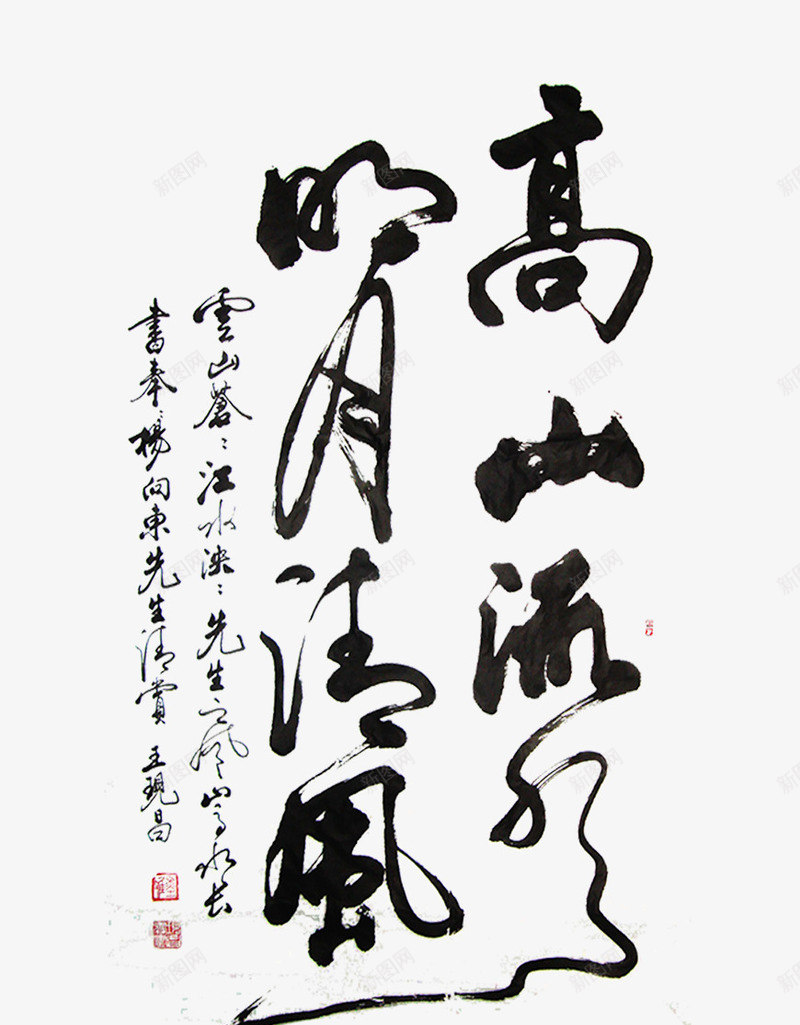 高山流水
明月清風
雲山蒼々江水泱々先生之风山高水长
書奉楊向東先生清賞 王現昌
新图网